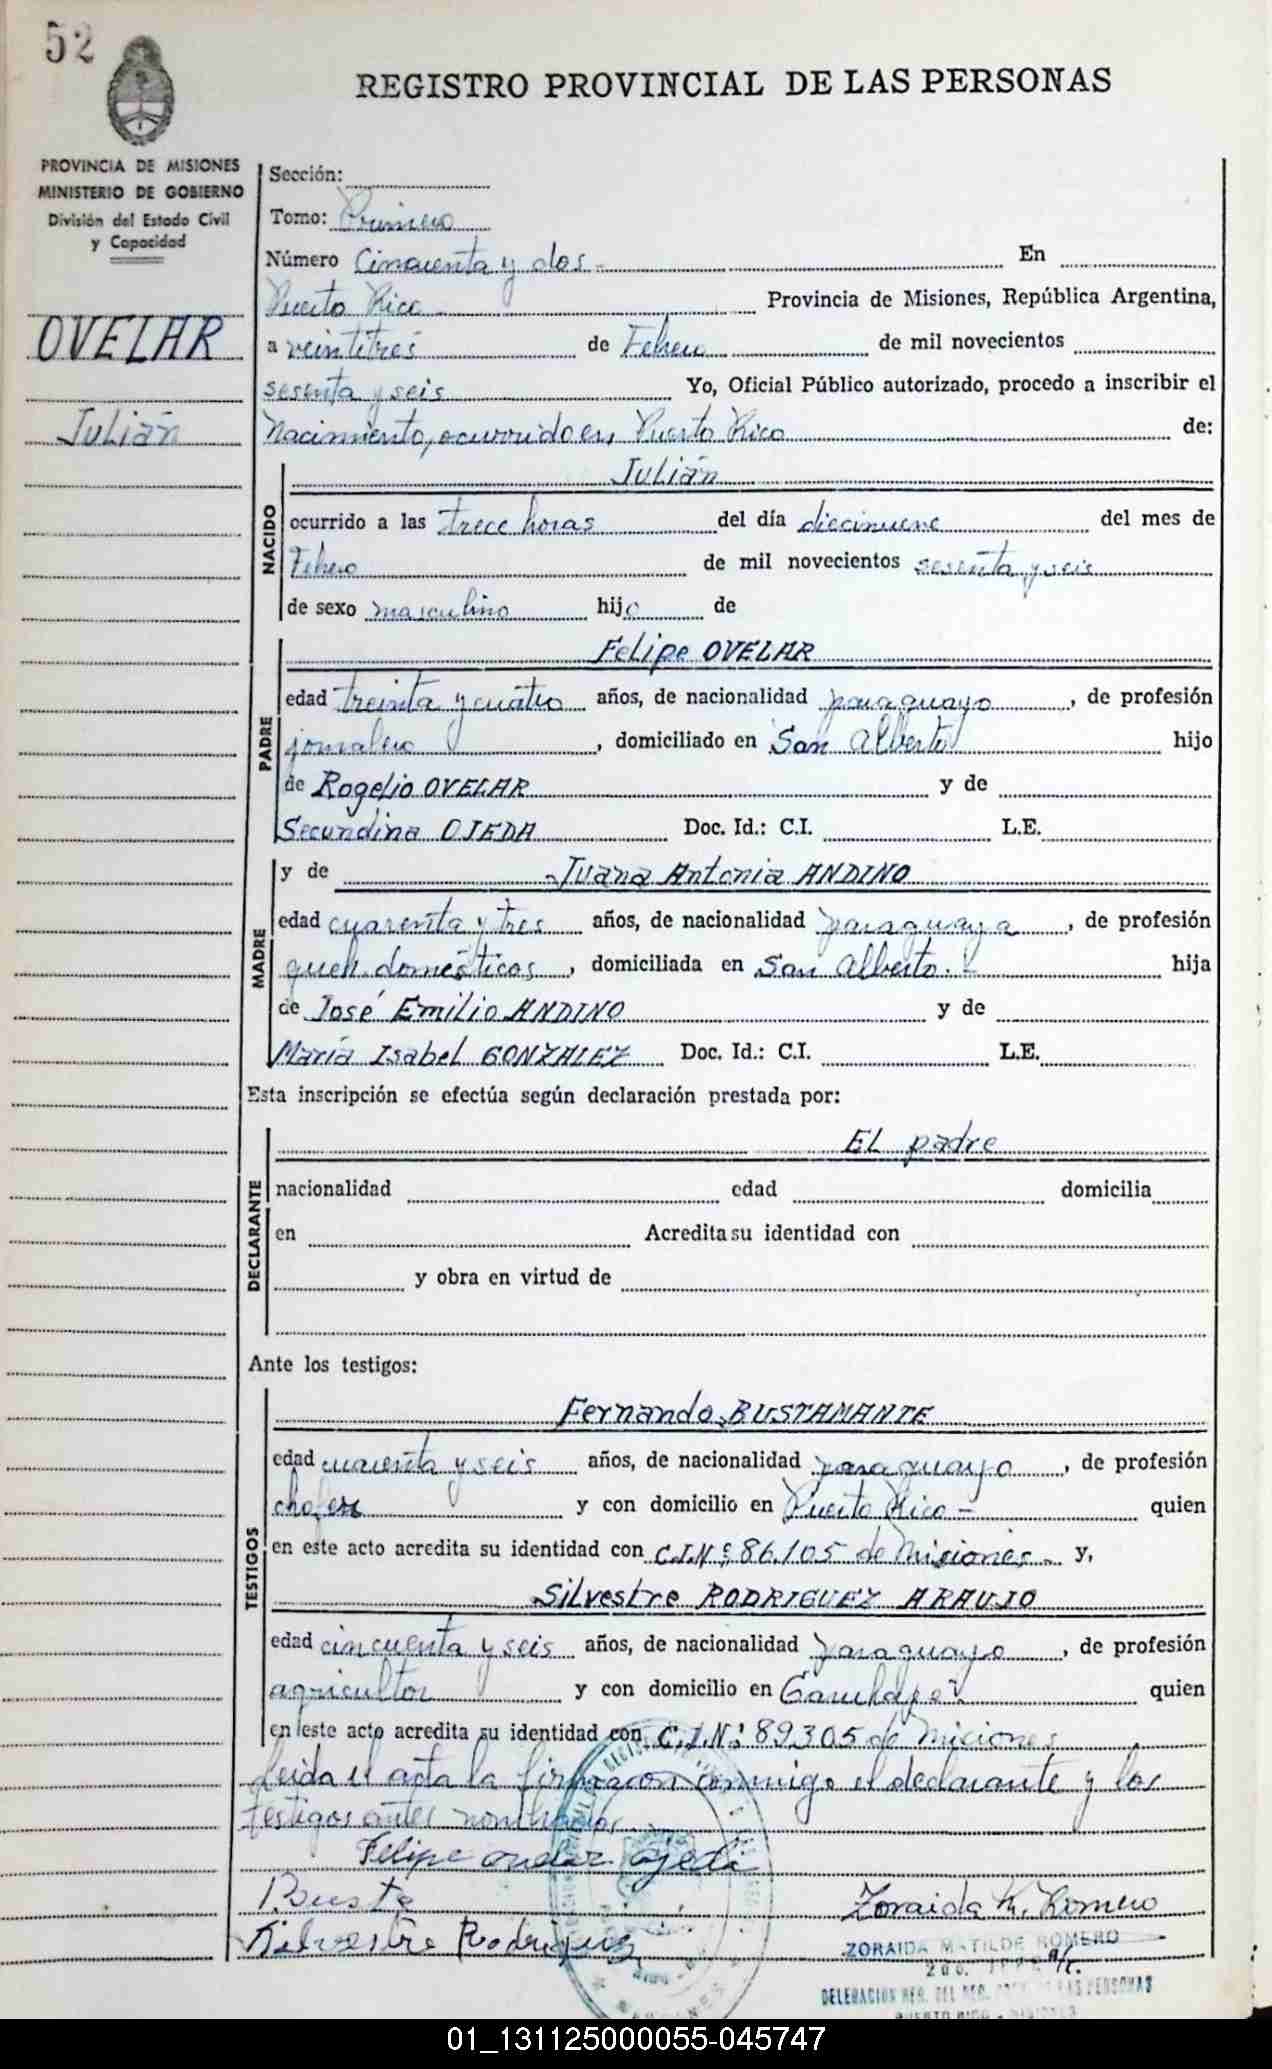 52
REGISTRO PROVINCIAL DE LAS PERSONAS
PROVINCIA DE MISIONES
MINISTERIO DE GOBIERNO
División del Estado Civil
y Capacidad
OVELAR
Julián
Sección:
Tomo: Primero
Número Cincuenta y dos - En
Puerto Rico - Provincia de Misiones, República Argentina,
a veintitrés de Febrero de mil novecientos
sesenta y seis Yo, Oficial Público autorizado, procedo a inscribir el
Nacimiento, ocurrido en, Puerto Rico de:
NACIDO
Julián
ocurrido a las trece horas del día diecinueve del mes de
Febrero de mil novecientos sesenta y seis
de sexo masculino hijo de
PADRE
Felipe OVELAR
edad treinta y cuatro años, de nacionalidad paraguayo, de profesión
jornalero, domiciliado en San Alberto hijo
de Rogelio OVELAR y de
Secundina OJEDA Doc. Id.: C.I. L.E.
MADRE
y de Juana Antonia ANDINO
edad cuarenta y tres años, de nacionalidad paraguaya, de profesión
queh. domésticos, domiciliada en San Alberto.- hija
de José Emilio ANDINO y de
María Isabel GONZALEZ Doc. Id.: C.I. L.E.
Esta inscripción se efectúa según declaración prestada por:
DECLARANTE
El padre
nacionalidad edad domicilia
en Acredita su identidad con
y obra en virtud de
Ante los testigos:
TESTIGOS
Fernando BUSTAMANTE
edad cuarenta y seis años, de nacionalidad paraguayo, de profesión
chofer y con domicilio en Puerto Rico - quien
en este acto acredita su identidad con C.I.Nº 86.105 de Misiones - y,
Silvestre RODRIGUEZ ARAUJO
edad cincuenta y seis años, de nacionalidad paraguayo, de profesión
agricultor y con domicilio en Garuhapé quien
en este acto acredita su identidad con C.I.N: 89305 de Misiones
Leida el acta la firmaron conmigo el declarante y los
testigos antes nombrados.
Felipe ovelar ojeda
Busta
Silvestre Rodriguez
Zoraida M. Romero
ZORAIDA MATILDE ROMERO
DELEGACION REG. DEL REG. PROV. DE LAS PERSONAS
PUERTO RICO - MISIONES
01_131125000055-045747